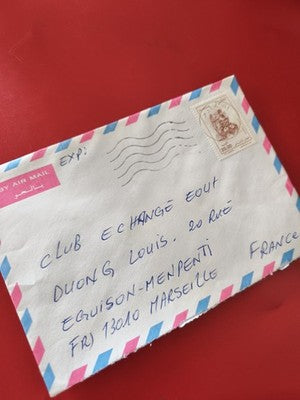 BY AIR MAIL
EXP:
CLUB ECHANGE EOUT
DUONG LOUIS. 20 RUE
EGUISON-MENPENTI
FR) 13010 MARSEILLE FRANCE